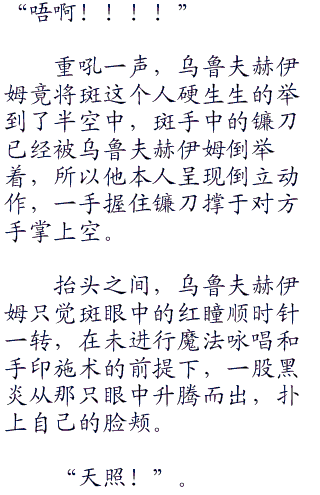 “唔啊！！！！”
重吼一声，乌鲁夫赫伊
姆竟将斑这个人硬生生的举
到了半空中，斑手中的镰刀
已经被乌鲁夫赫伊姆倒举
着，所以他本人呈现倒立动
作，一手握住镰刀撑于对方
手掌上空。
抬头之间，乌鲁夫赫伊
姆只觉斑眼中的红瞳顺时针
一转，在未进行魔法咏唱和
手印施术的前提下，一股黑
炎从那只眼中升腾而出，扑
上自己的脸颊。
“天照！”。